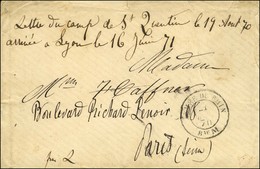 Lettre du camp de St Quentin le 19 Aout 70
arrivée à Lyon le 16 Juin 71
Madame
Mme Haffner
Boulevard Richard Lenoir
Paris
(Seine)